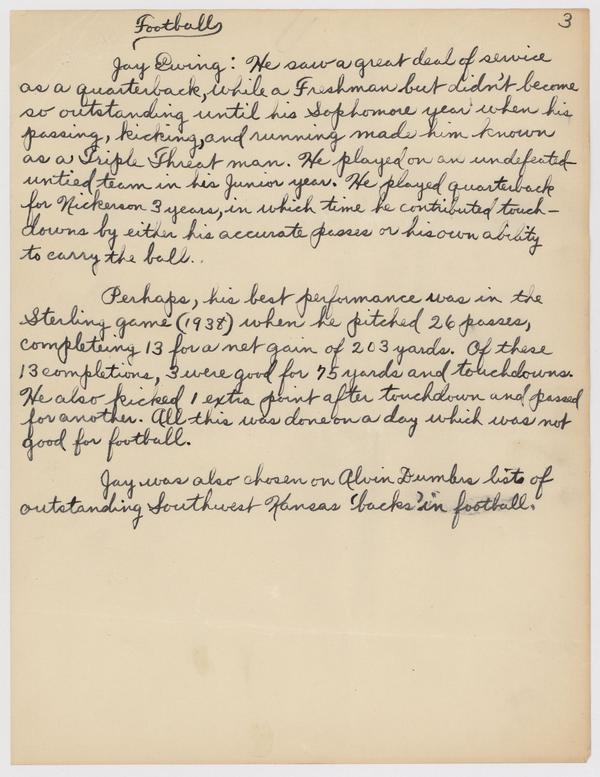 3
Football
Jay Ewing: He saw a great deal of service
as a quarterback, while a Freshman but didn't become
so outstanding until his Sophomore year when his
passing, kicking, and running made him known
as a Triple Threat man. He played on an undefeated
untied team in his Junior year. He played quarterback
for Nickerson 3 years, in which time he contributed touch-
downs by either his accurate passes or his own ability
to carry the ball..
Perhaps, his best performance was in the
Sterling game (1938) when he pitched 26 passes,
completeing 13 for a net gain of 203 yards. Of these
13 completions, 3 were good for 75 yards and touchdowns.
He also kicked 1 extra point after touchdown and passed
for another. All this was done on a day which was not
good for football.
Jay was also chosen on Alvin Dumlers lists of
outstanding Southwest Kansas 'backs' in football.